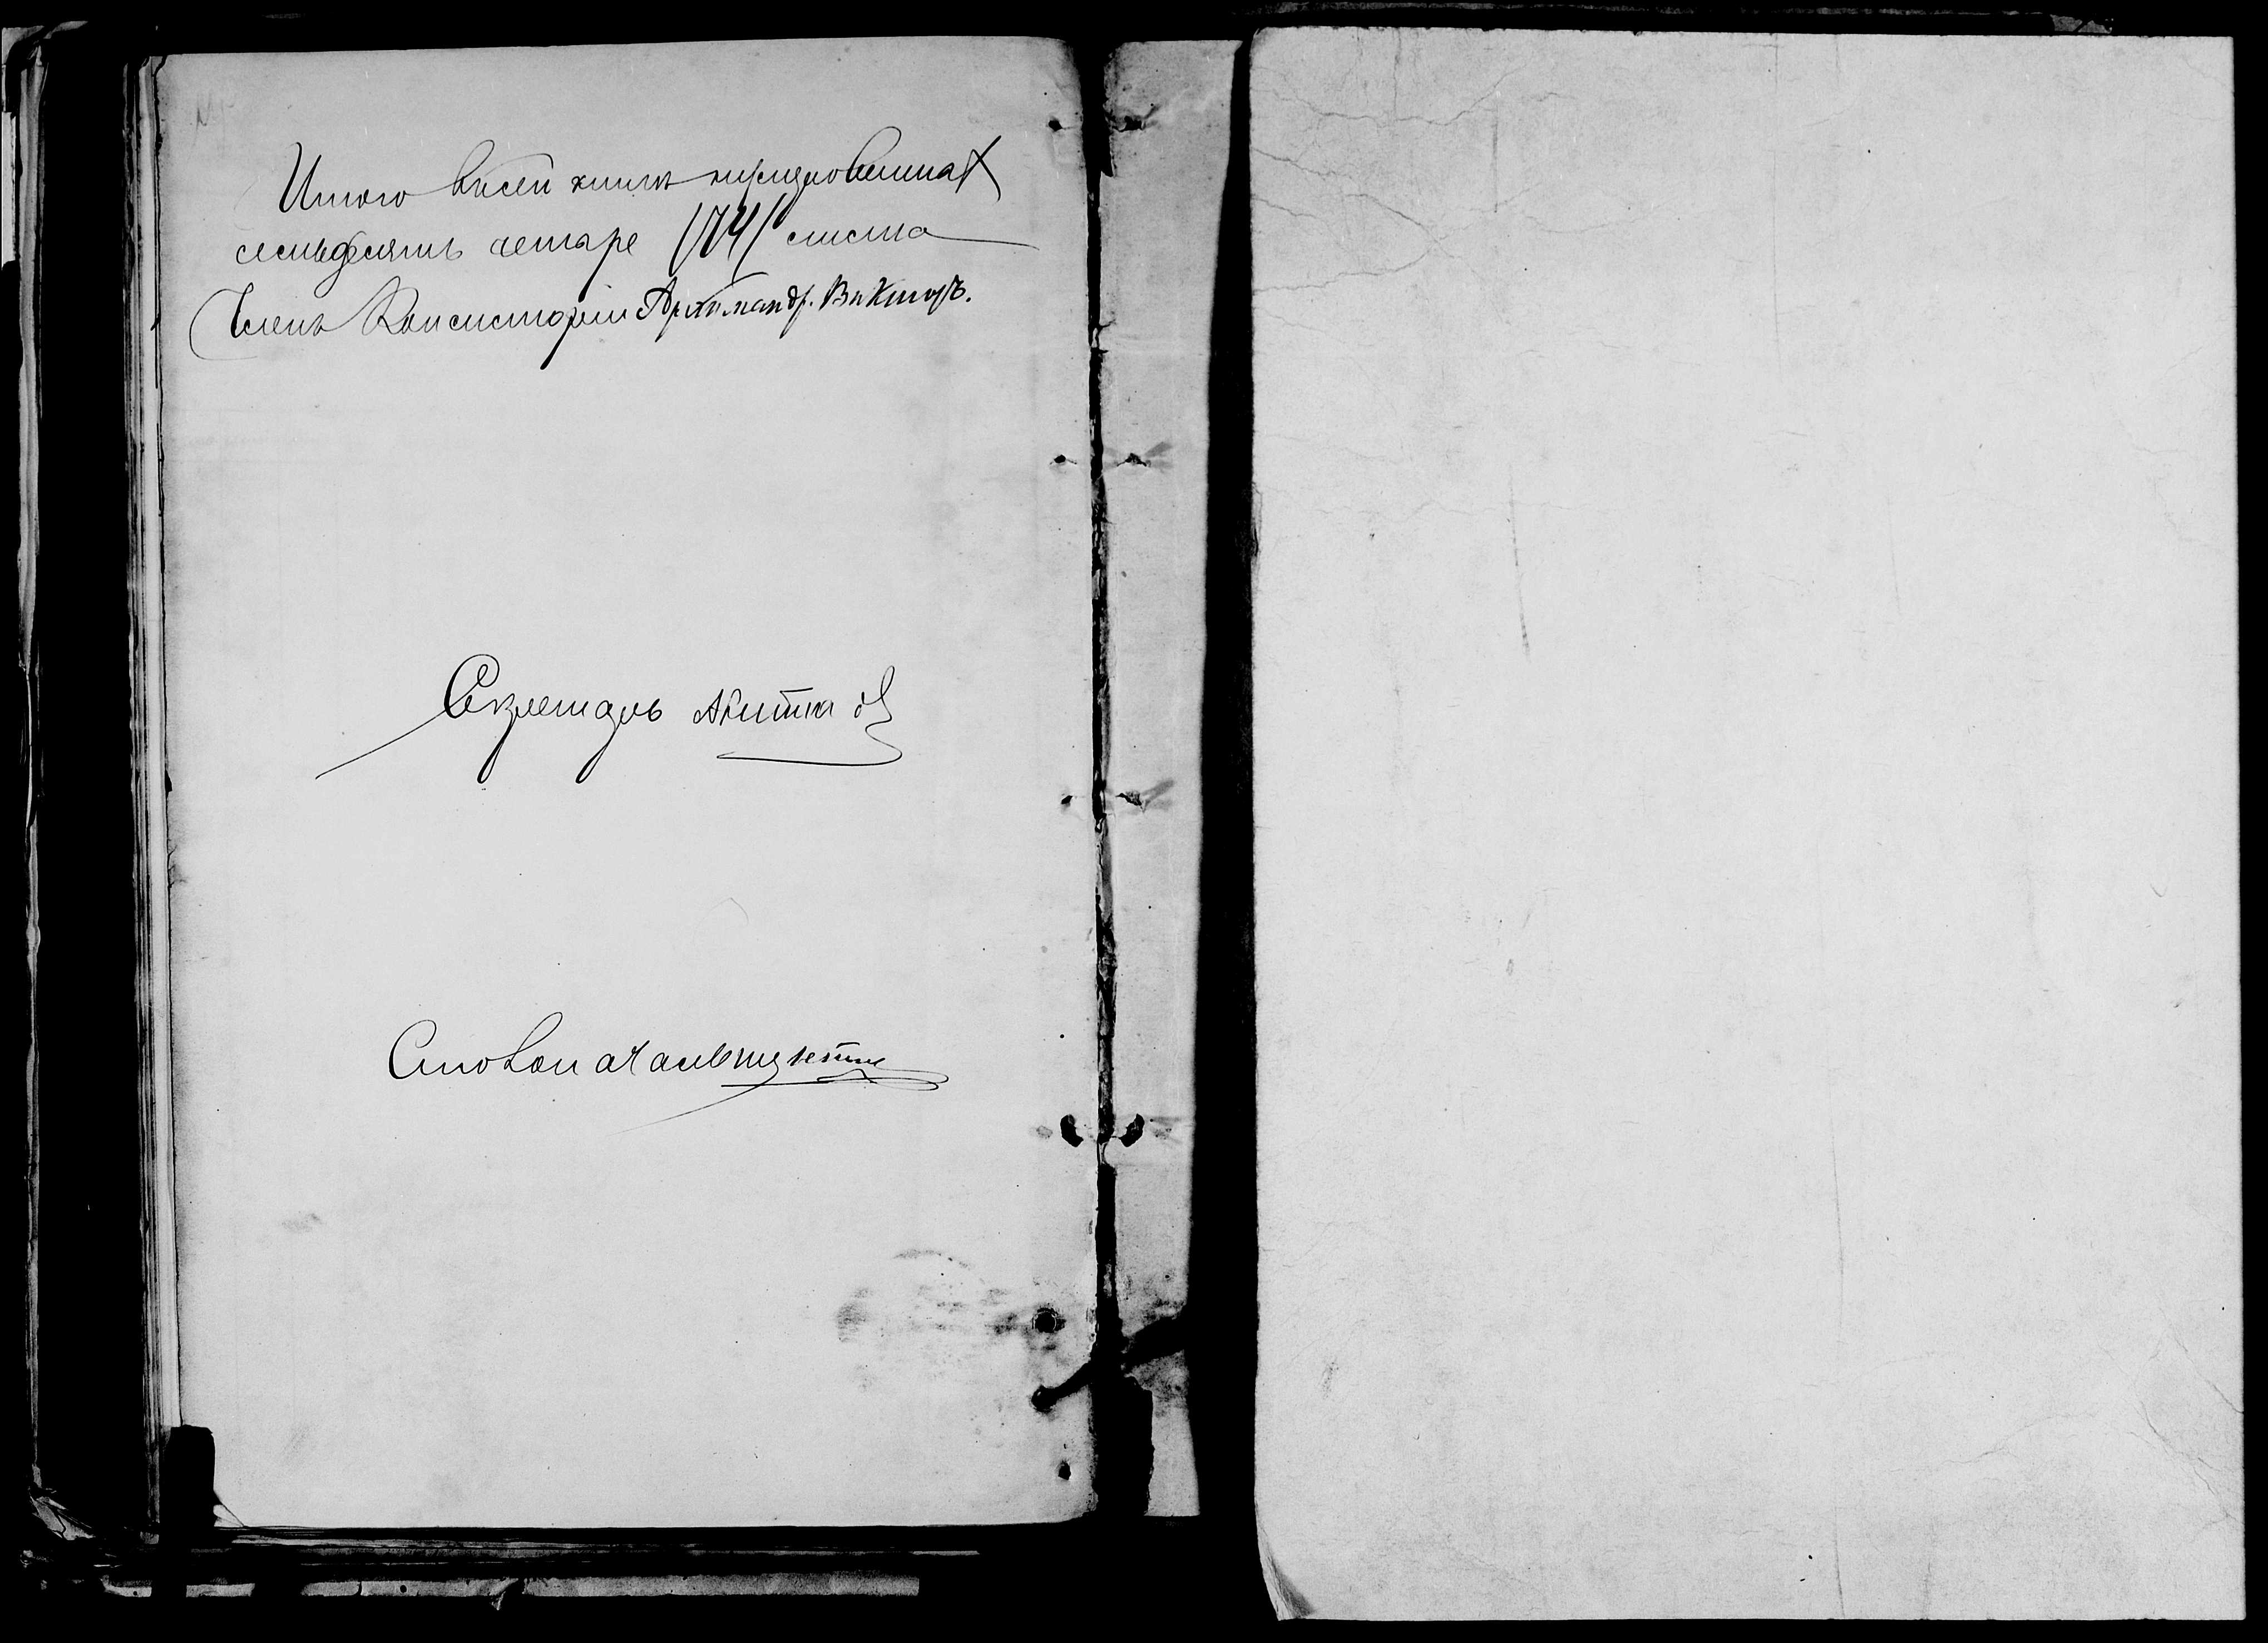 Итого въ сей книгѣ нумерованныхъ
семьдесятъ четыре /74/ листа
Членъ Консисторіи Архимандр. Викторъ.
Секретарь
Столоначальникъ